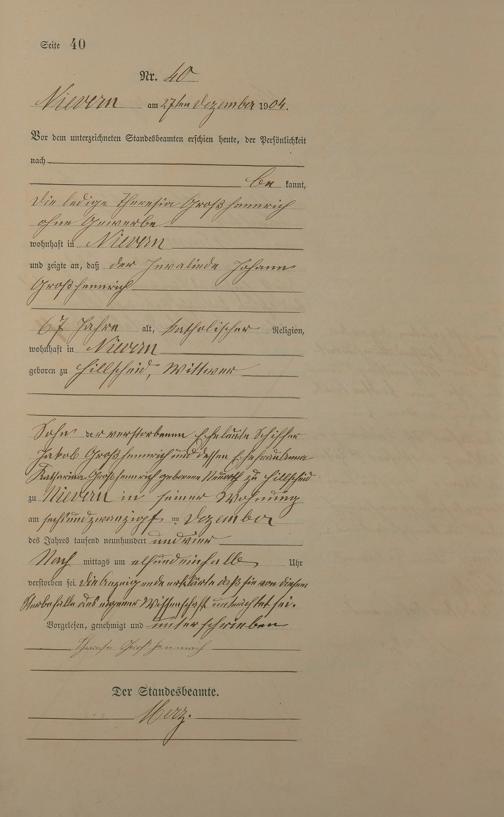 Seite 40
Nr. 40
Nievern am 27ten Dezember 1904.
Vor dem unterzeichneten Standesbeamten erschien heute, der Persönlichkeit
nach
be kannt,
die ledige Theresia Großheinrich
ohne Gewerbe
wohnhaft in Nievern
und zeigte an, daß der Invalide Johann
Großheinrich
67 Jahre alt, katholischer Religion,
wohnhaft in Nievern
geboren zu Hillscheid, Wittwer
Sohn der verstorbenen Eheleute Schiffer
Jakob Großheinrich und dessen Ehefrau Anna
Katharina Großheinrich geborene zu Hillscheid
zu Nievern in seiner Wohnung
am sechsundzwanzigst en Dezember
des Jahres tausend neunhundert und vier
Nach mittags um elfundeinhalb Uhr
verstorben sei. Die Anzeigende erklärte daß sie von diesem
Sterbefalle aus eigener Wissenschaft unterrichtet sei.
Vorgelesen, genehmigt und unterschrieben
Theresia Großheinrich
Der Standesbeamte.
Merz.